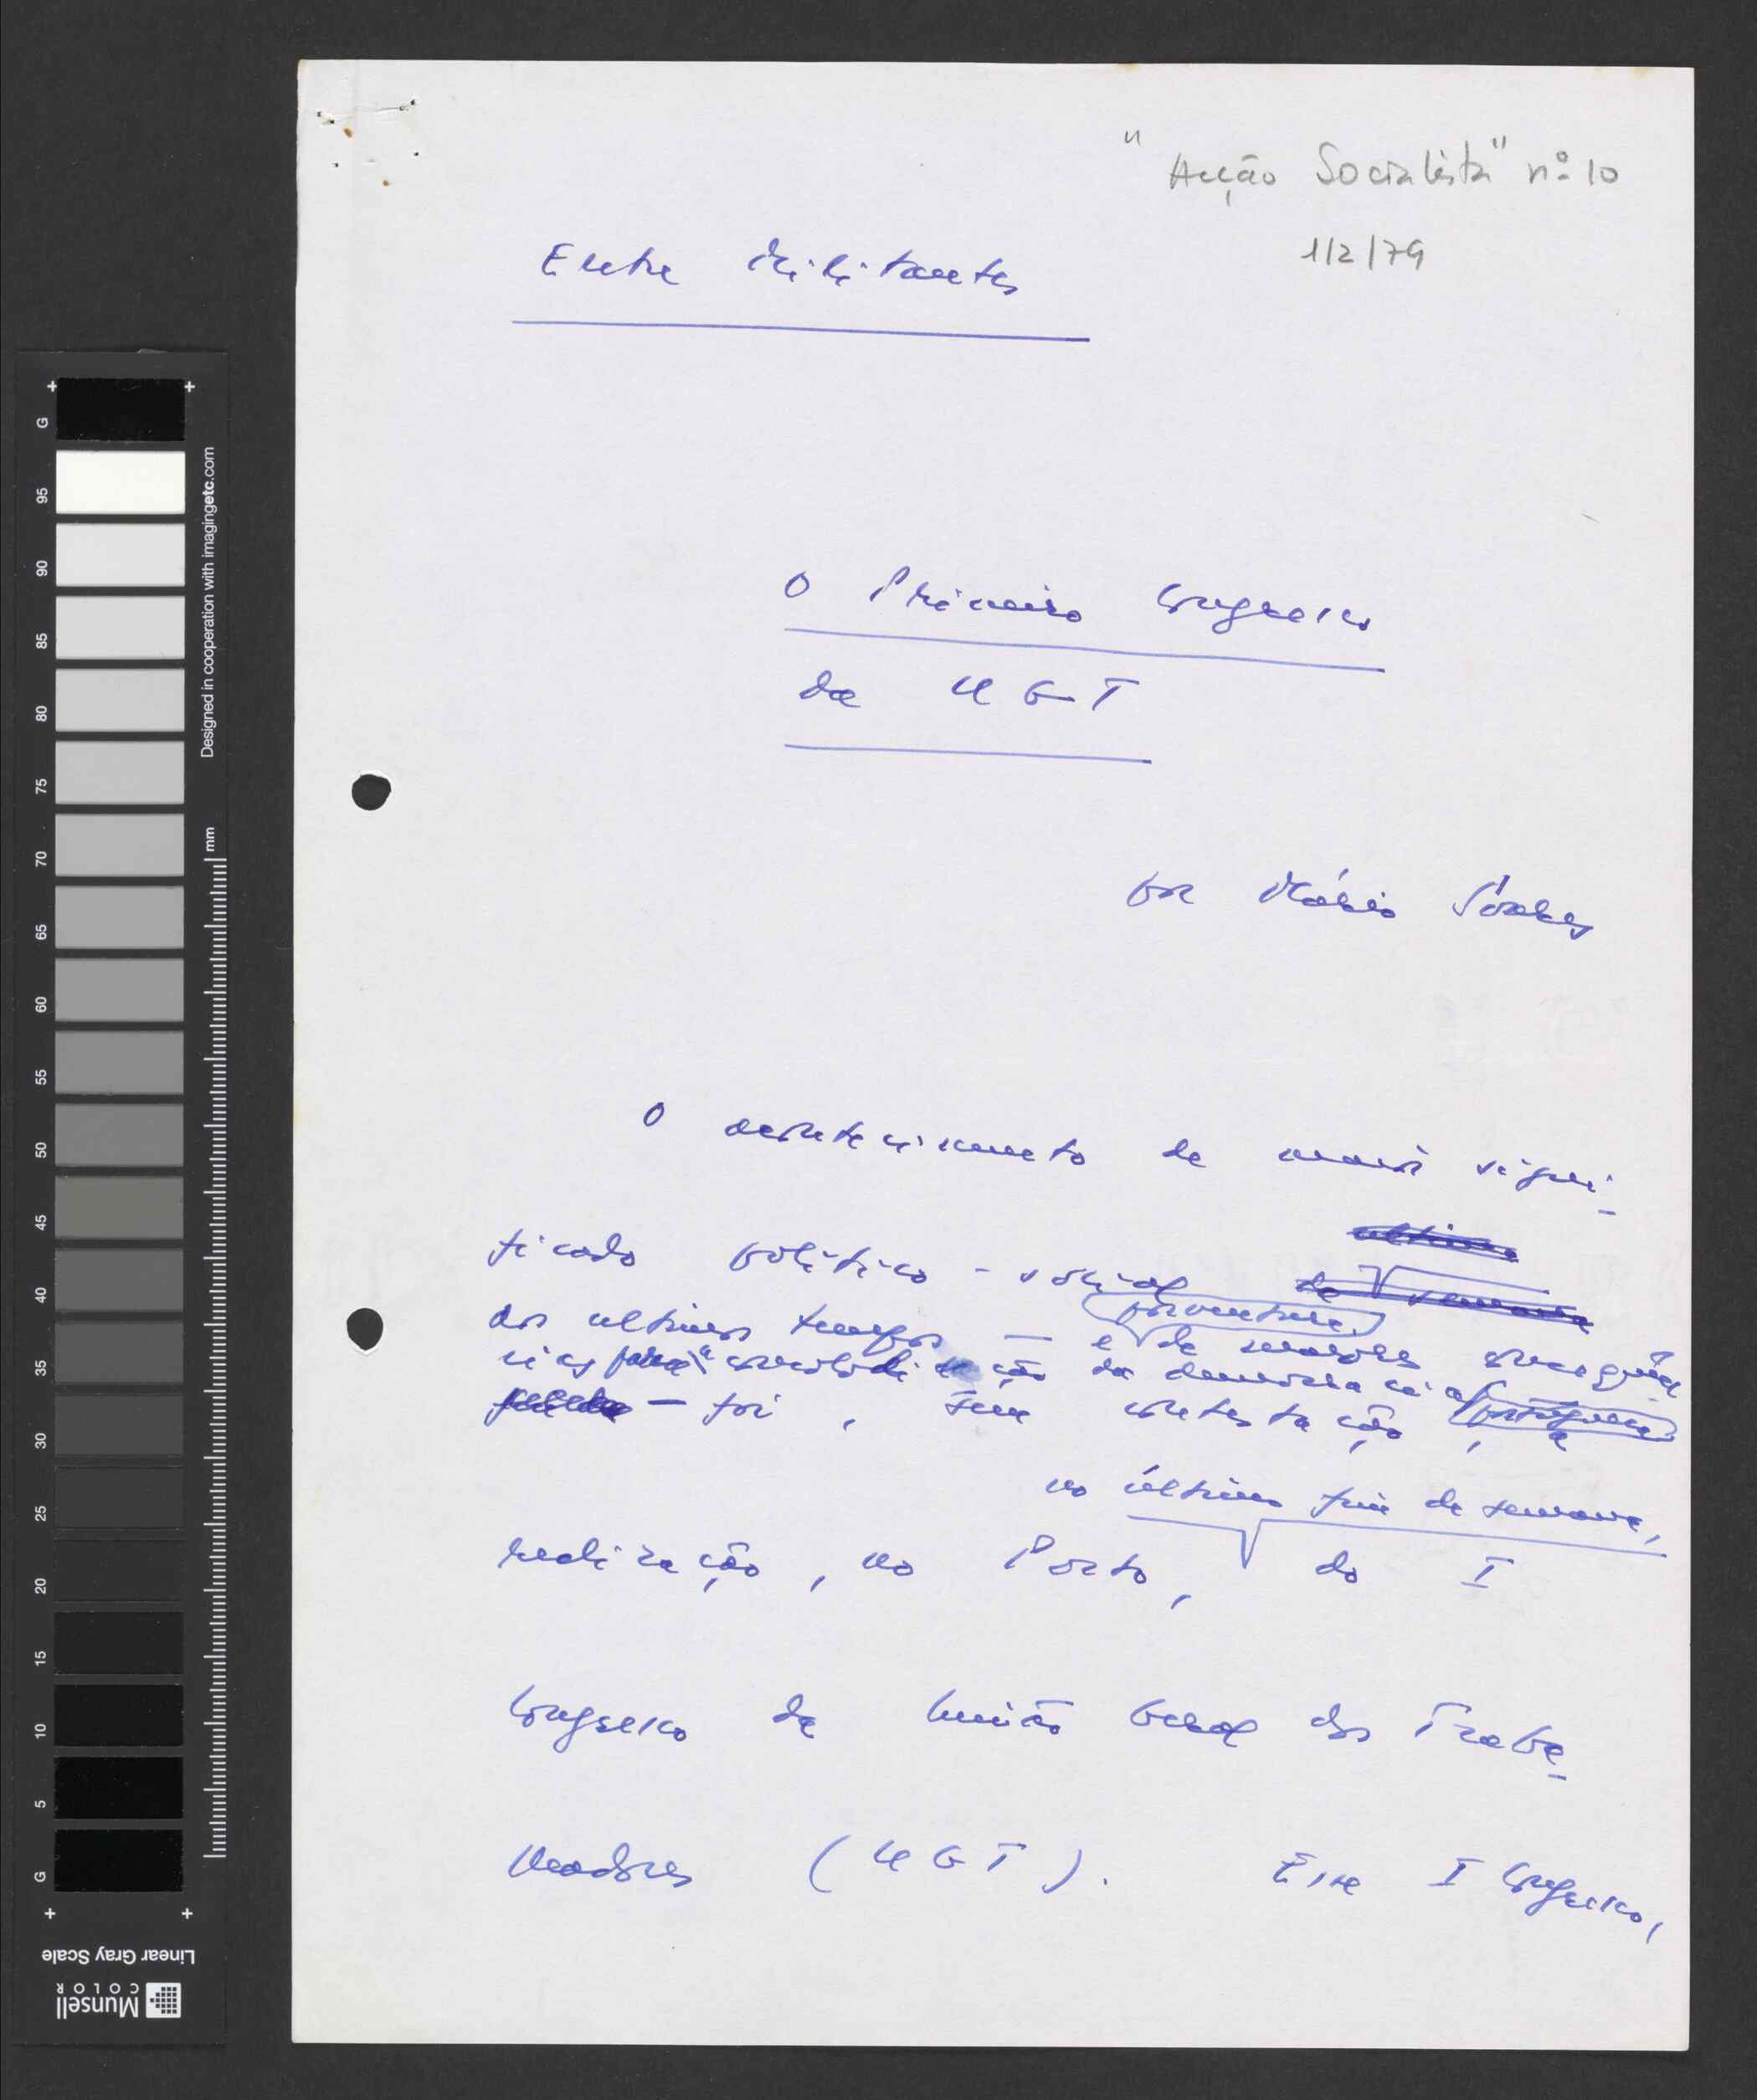 "Acção Socialista" nº 10
1/2/79
Entre Militantes
O Primeiro Congresso
da UGT
por Mário Soares
O acontecimento de maior signi-
ficado político-social
dos ultimos tempos — e porventura, de maiores consequên
cias para a consolidação da democracia portuguesa
— foi, sem contestação, a
no último fim de semana,
realização, no Porto, do I
Congresso da União Geral dos Traba-
lhadores (UGT). Esse I Congresso,
G
95
90
85
80
75
70
65
60
55
50
45
40
35
30
25
20
15
10
5
G
Designed in cooperation with imagingetc.com
mm
Linear Gray Scale
Munsell
COLOR